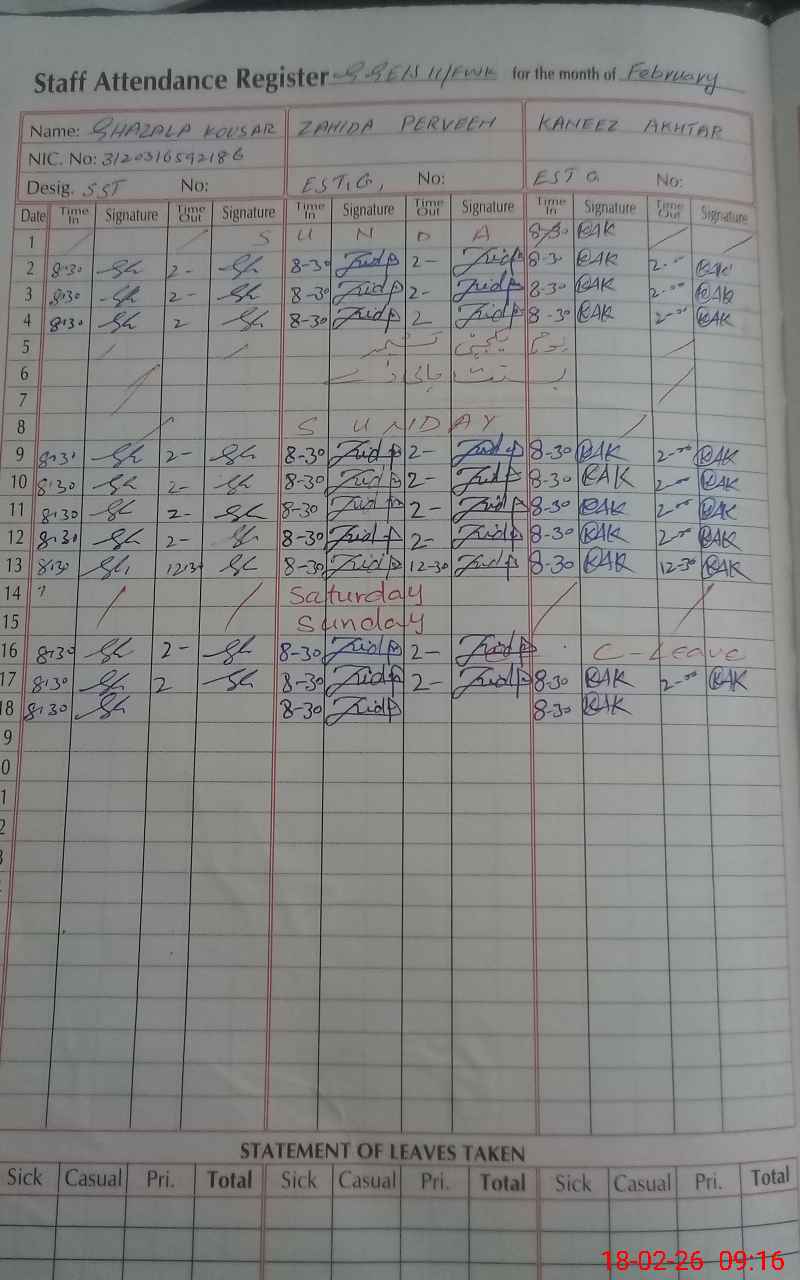 Staff Attendance Register GGES 11/FWK for the month of February
Name: GHAZALA KOUSAR ZAHIDA PERVEEN KANEEZ AKHTAR
NIC. No: 3120316592186
Desig. SST No: EST, G, No: EST G No:
Date Time In Signature Time Out Signature Time In Signature Time Out Signature Time In Signature Time Out Signature
1 S U N D A 8-30 KAK
2 8:30 Gh 2- Gh 8-30 2- 8-30 KAK 2-00 KAK
3 8:30 Gh 2- Gh 8-30 2- 8-30 KAK 2-00 KAK
4 8:30 Gh 2 Gh 8-30 2 8-30 KAK 2-00 KAK
5 یوم یکجہتی کشمیر
6 بسنت
7
8 S U N D A Y
9 8:30 Gh 2- Gh 8-30 2- 8-30 KAK 2-00 KAK
10 8:30 Gh 2- Gh 8-30 2- 8-30 KAK 2-00 KAK
11 8:30 Gh 2- Gh 8-30 2- 8-30 KAK 2-00 KAK
12 8:30 Gh 2- Gh 8-30 2- 8-30 KAK 2-00 KAK
13 8:30 Gh 12:30 Gh 8-30 12-30 8-30 KAK 12-30 KAK
14 Saturday
15 Sunday
16 8:30 Gh 2- Gh 8-30 2- C-Leave
17 8:30 Gh 2 Gh 8-30 2- 8-30 KAK 2-00 KAK
18 8:30 Gh 8-30 8-30 KAK
9
0
1
2
STATEMENT OF LEAVES TAKEN
Sick Casual Pri. Total Sick Casual Pri. Total Sick Casual Pri. Total
18-02-26 09:16